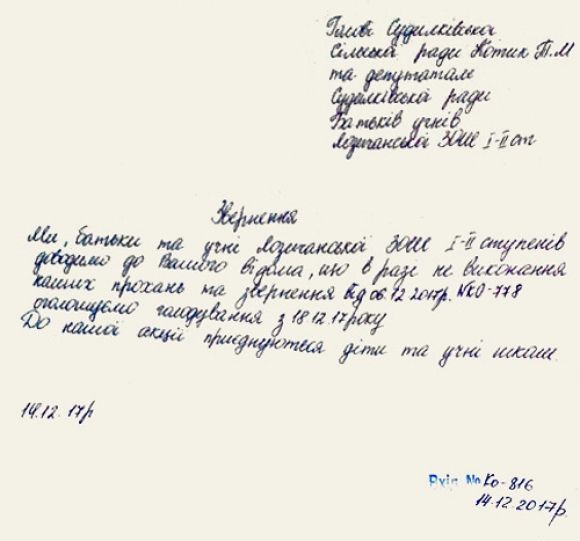 Голові Судилківської
Сільської ради Котик Т.М
та депутатам
Судилківської ради
Батьків учнів
Лозичанської ЗОШ I-II ст
Звернення
Ми, батьки та учні Лозичанської ЗОШ I-II ступенів
доводимо до Вашого відома, що в разі не виконання
наших прохань та звернення від 06.12 2017р. №КО-778
оголошуємо голодування з 18 12.17року
До нашої акції приєднуються діти та учні школи.
14.12.17р
Вхід №Ко-816
14.12.2017р.